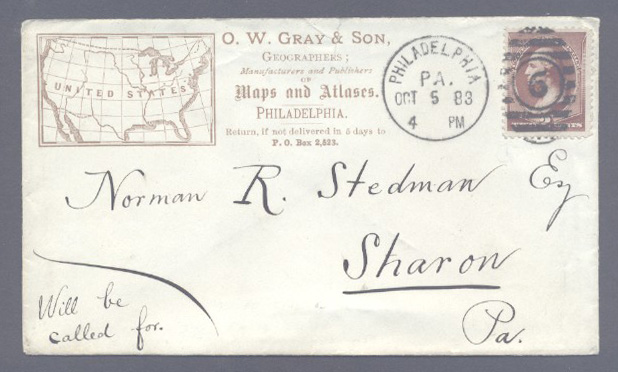 UNITED STATES
O. W. GRAY & SON,
GEOGRAPHERS;
Manufacturers and Publishers
OF
Maps and Atlases.
PHILADELPHIA.
Return, if not delivered in 5 days to
P. O. Box 2,523.
PHILADELPHIA
PA.
OCT 5 83
4 PM
6
Norman R. Stedman Esq
Sharon
Pa.
Will be
called for.